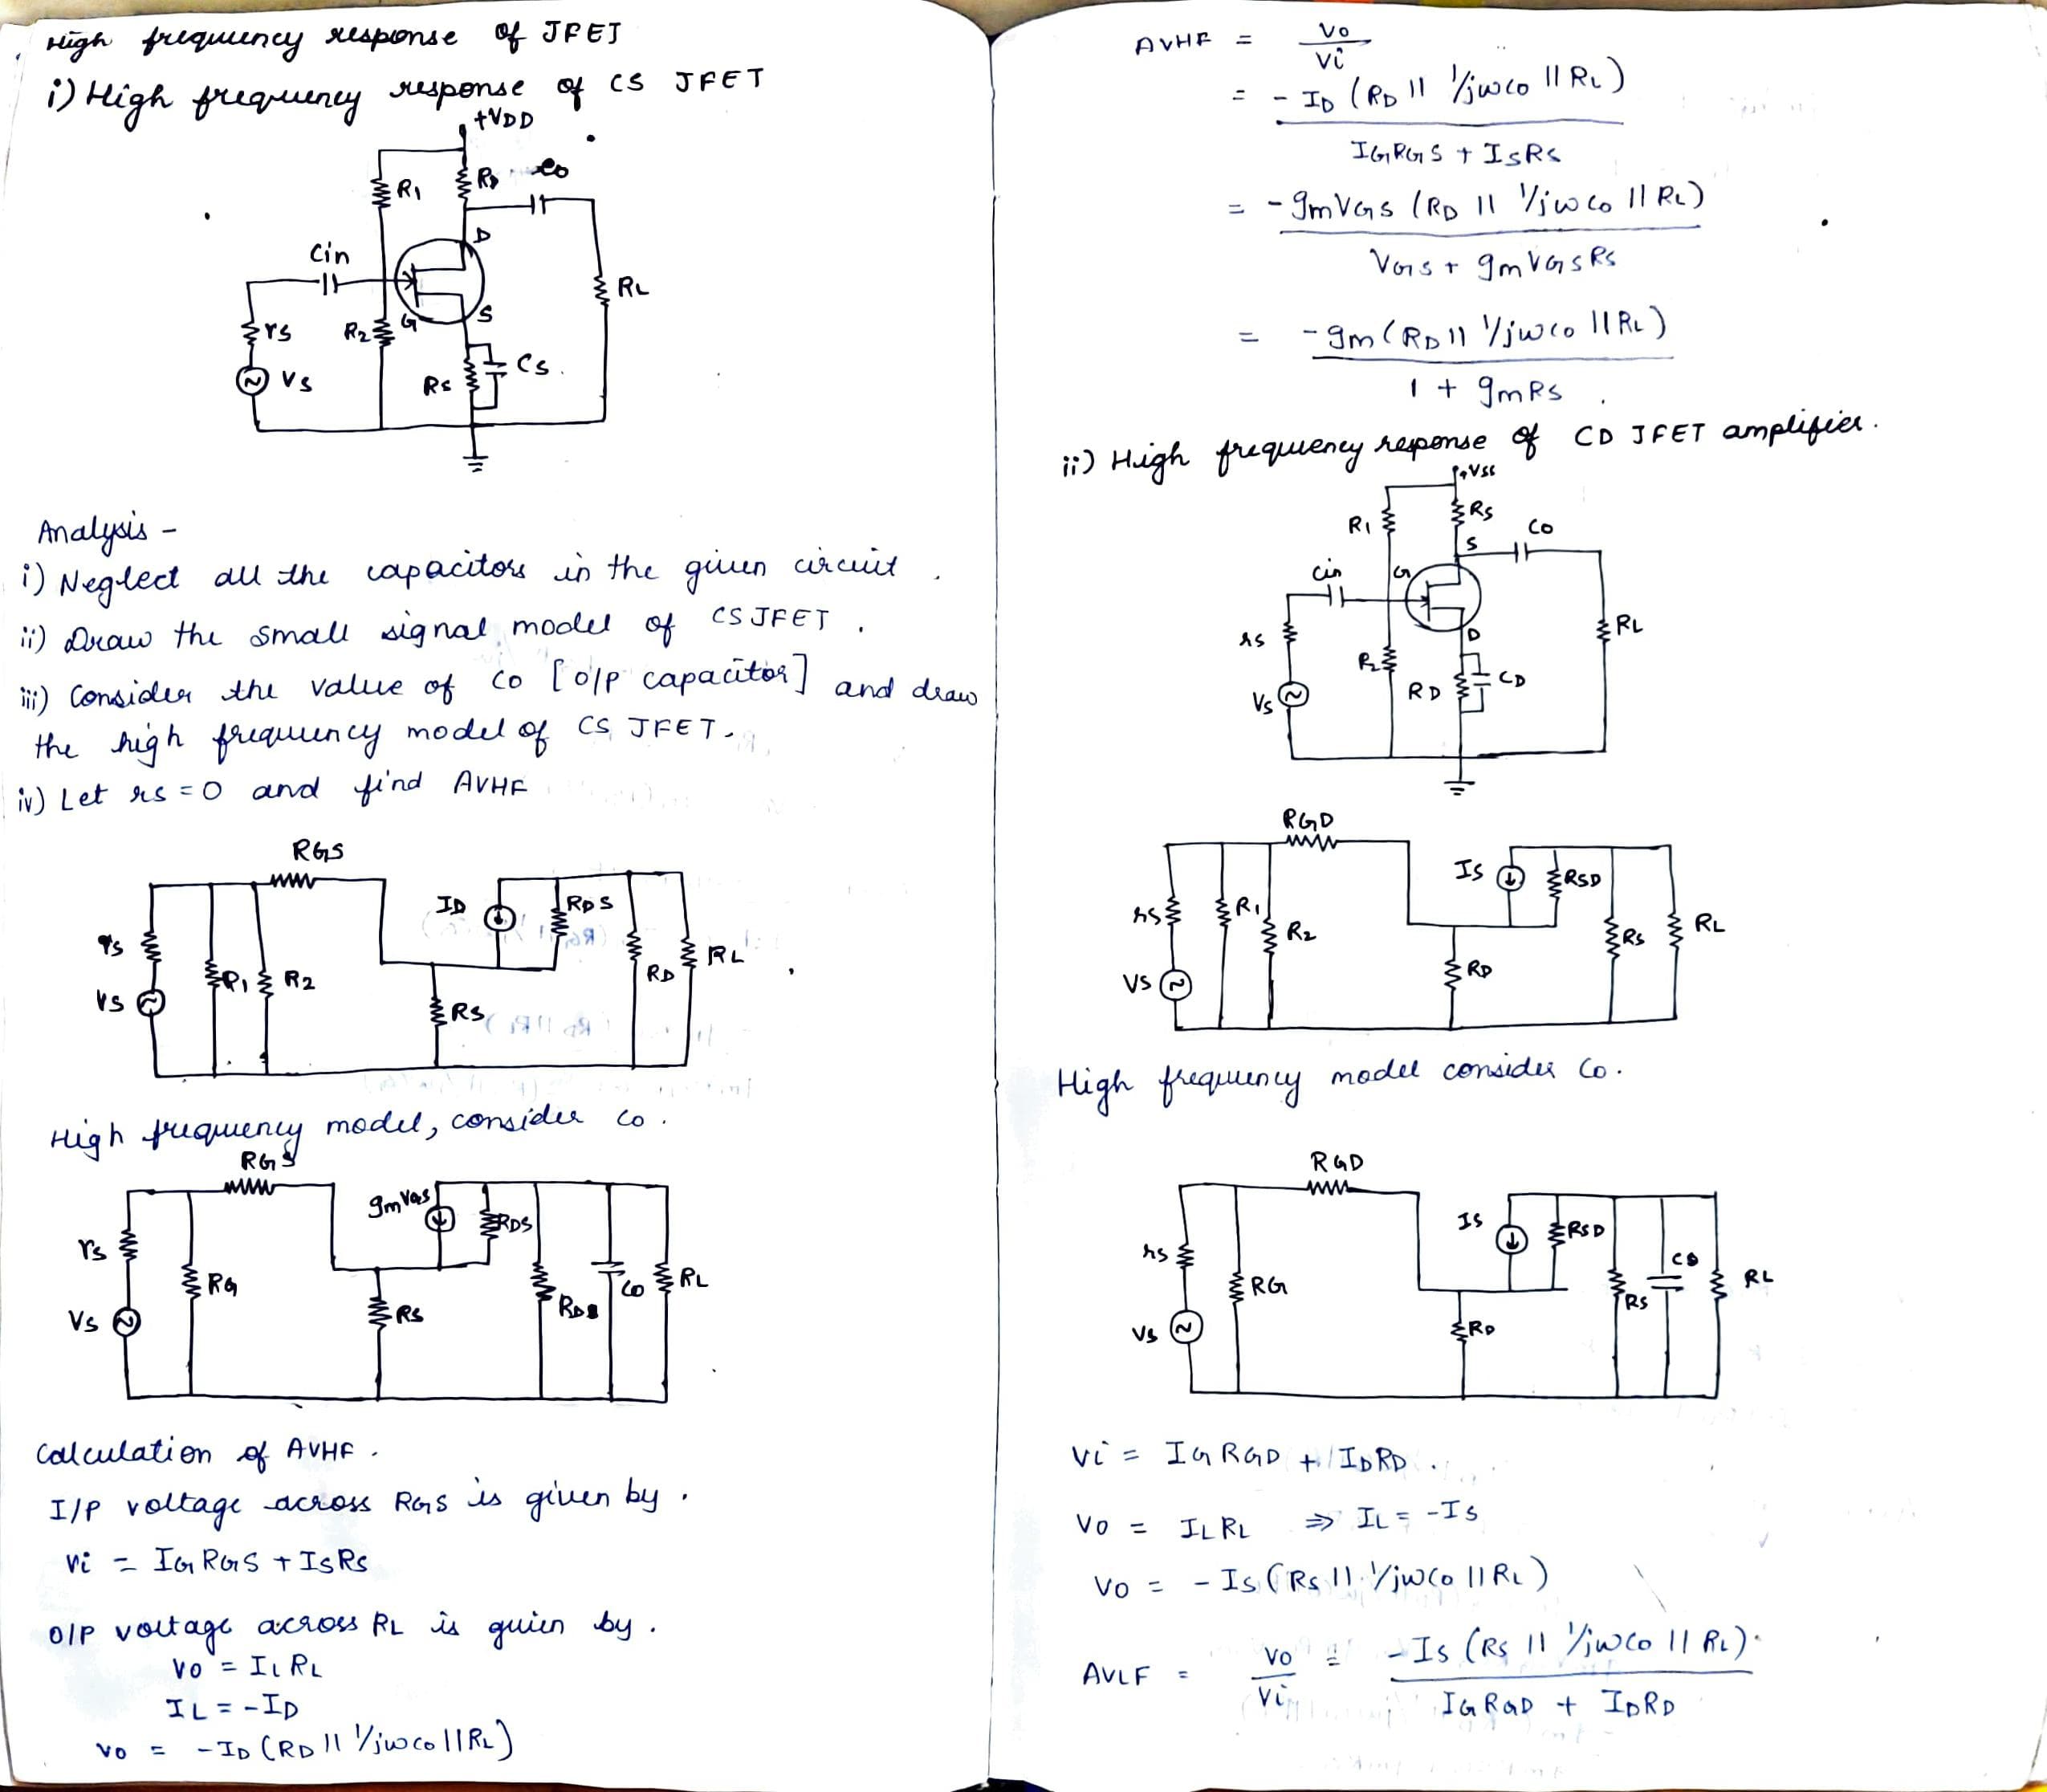 High frequency response of JFET
i) High frequency response of CS JFET
+VDD
R1
RD
Co
D
Cin
G
S
RL
rs
R2
Vs
Rs
Cs.
Analysis -
i) Neglect all the capacitors in the given circuit.
ii) Draw the small signal model of CS JFET.
iii) Consider the value of Co [o/p capacitor] and draw
the high frequency model of CS JFET.
iv) Let rs = 0 and find AVHF
RGS
ID
RDS
rs
R1
R2
RD
RL
Vs
RS
High frequency model, consider Co.
RGS
gmVGS
RDS
rs
RG
RS
RD
Co
RL
Vs
Calculation of AVHF.
I/P voltage across RGS is given by.
Vi = IG RGS + IS RS
O/P voltage across RL is guien by.
Vo = IL RL
IL = -ID
Vo = -ID (RD || 1/jwco || RL)
AVHF = Vo / Vi
= - ID (RD || 1/jwco || RL) / IGRGS + ISRS
= - gmVGS (RD || 1/jwco || RL) / VGS + gmVGSRS
= - gm (RD || 1/jwco || RL) / 1 + gmRS.
ii) High frequency reponse of CD JFET amplifier.
+VSS
R1
RS
S
Co
Cin
G
D
RL
rs
R2
RD
CD
Vs
RGD
IS
RSD
rs
R1
R2
RS
RL
Vs
RD
High frequency model consider Co.
RGD
IS
RSD
rs
RG
RS
Co
RL
Vs
RD
Vi = IG RGD + IDRD.
Vo = ILRL ⇒ IL = -IS
Vo = - IS (RS || 1/jwco || RL)
AVLF = Vo / Vi = - IS (RS || 1/jwco || RL) / IG RGD + IDRD